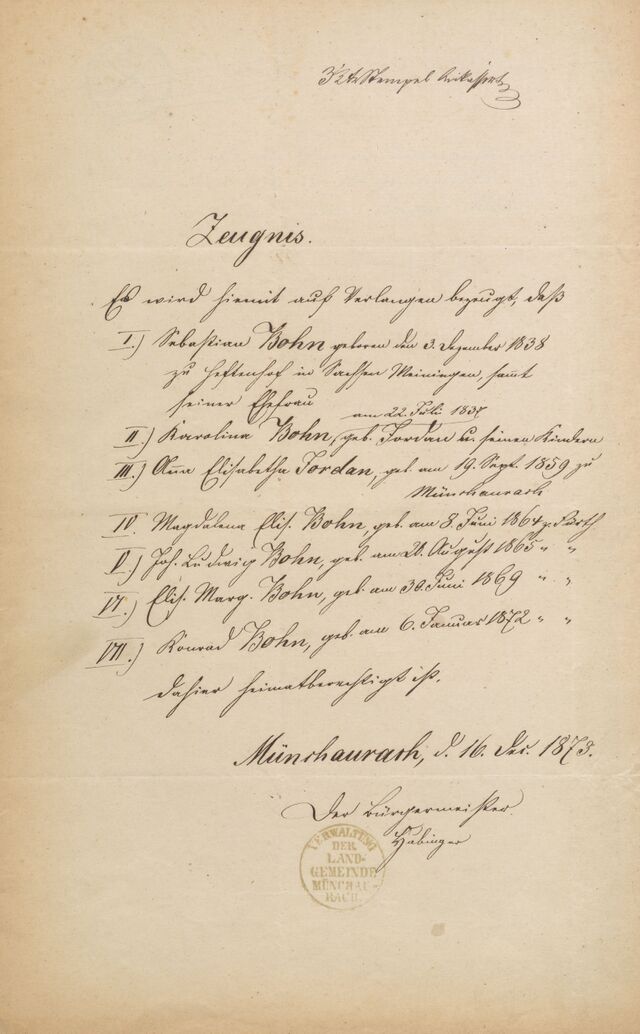 3 Kr Stempel
Zeugnis.
Es wird hiemit auf Verlangen bezeugt, daß
I.) Sebastian Bohn geboren den 3. Dezember 1838
zu Heftenhof in Sachsen Meiningen, sammt
seiner Ehefrau
am 22. Juli 1837
II.) Karolina Bohn, geb. Jordan u. seinen Kindern
III.) Anna Elisabetha Jordan, geb. am 19. Sept. 1859 zu
Münchaurach
IV. Magdalena Elis. Bohn, geb. am 8. Juni 1864 z. Fürth
V.) Joh. Ludwig Bohn, geb. am 28. August 1865 " "
VI.) Elis. Marg. Bohn, geb. am 30. Juni 1869 " "
VII.) Konrad Bohn, geb. am 6. Januar 1872 " "
dahier heimatberechtigt ist.
Münchaurach, d. 16. Dec. 1873.
Der Bürgermeister
Hubinger
VERWALTUNG
DER
LAND-
GEMEINDE
MÜNCHAU-
RACH.